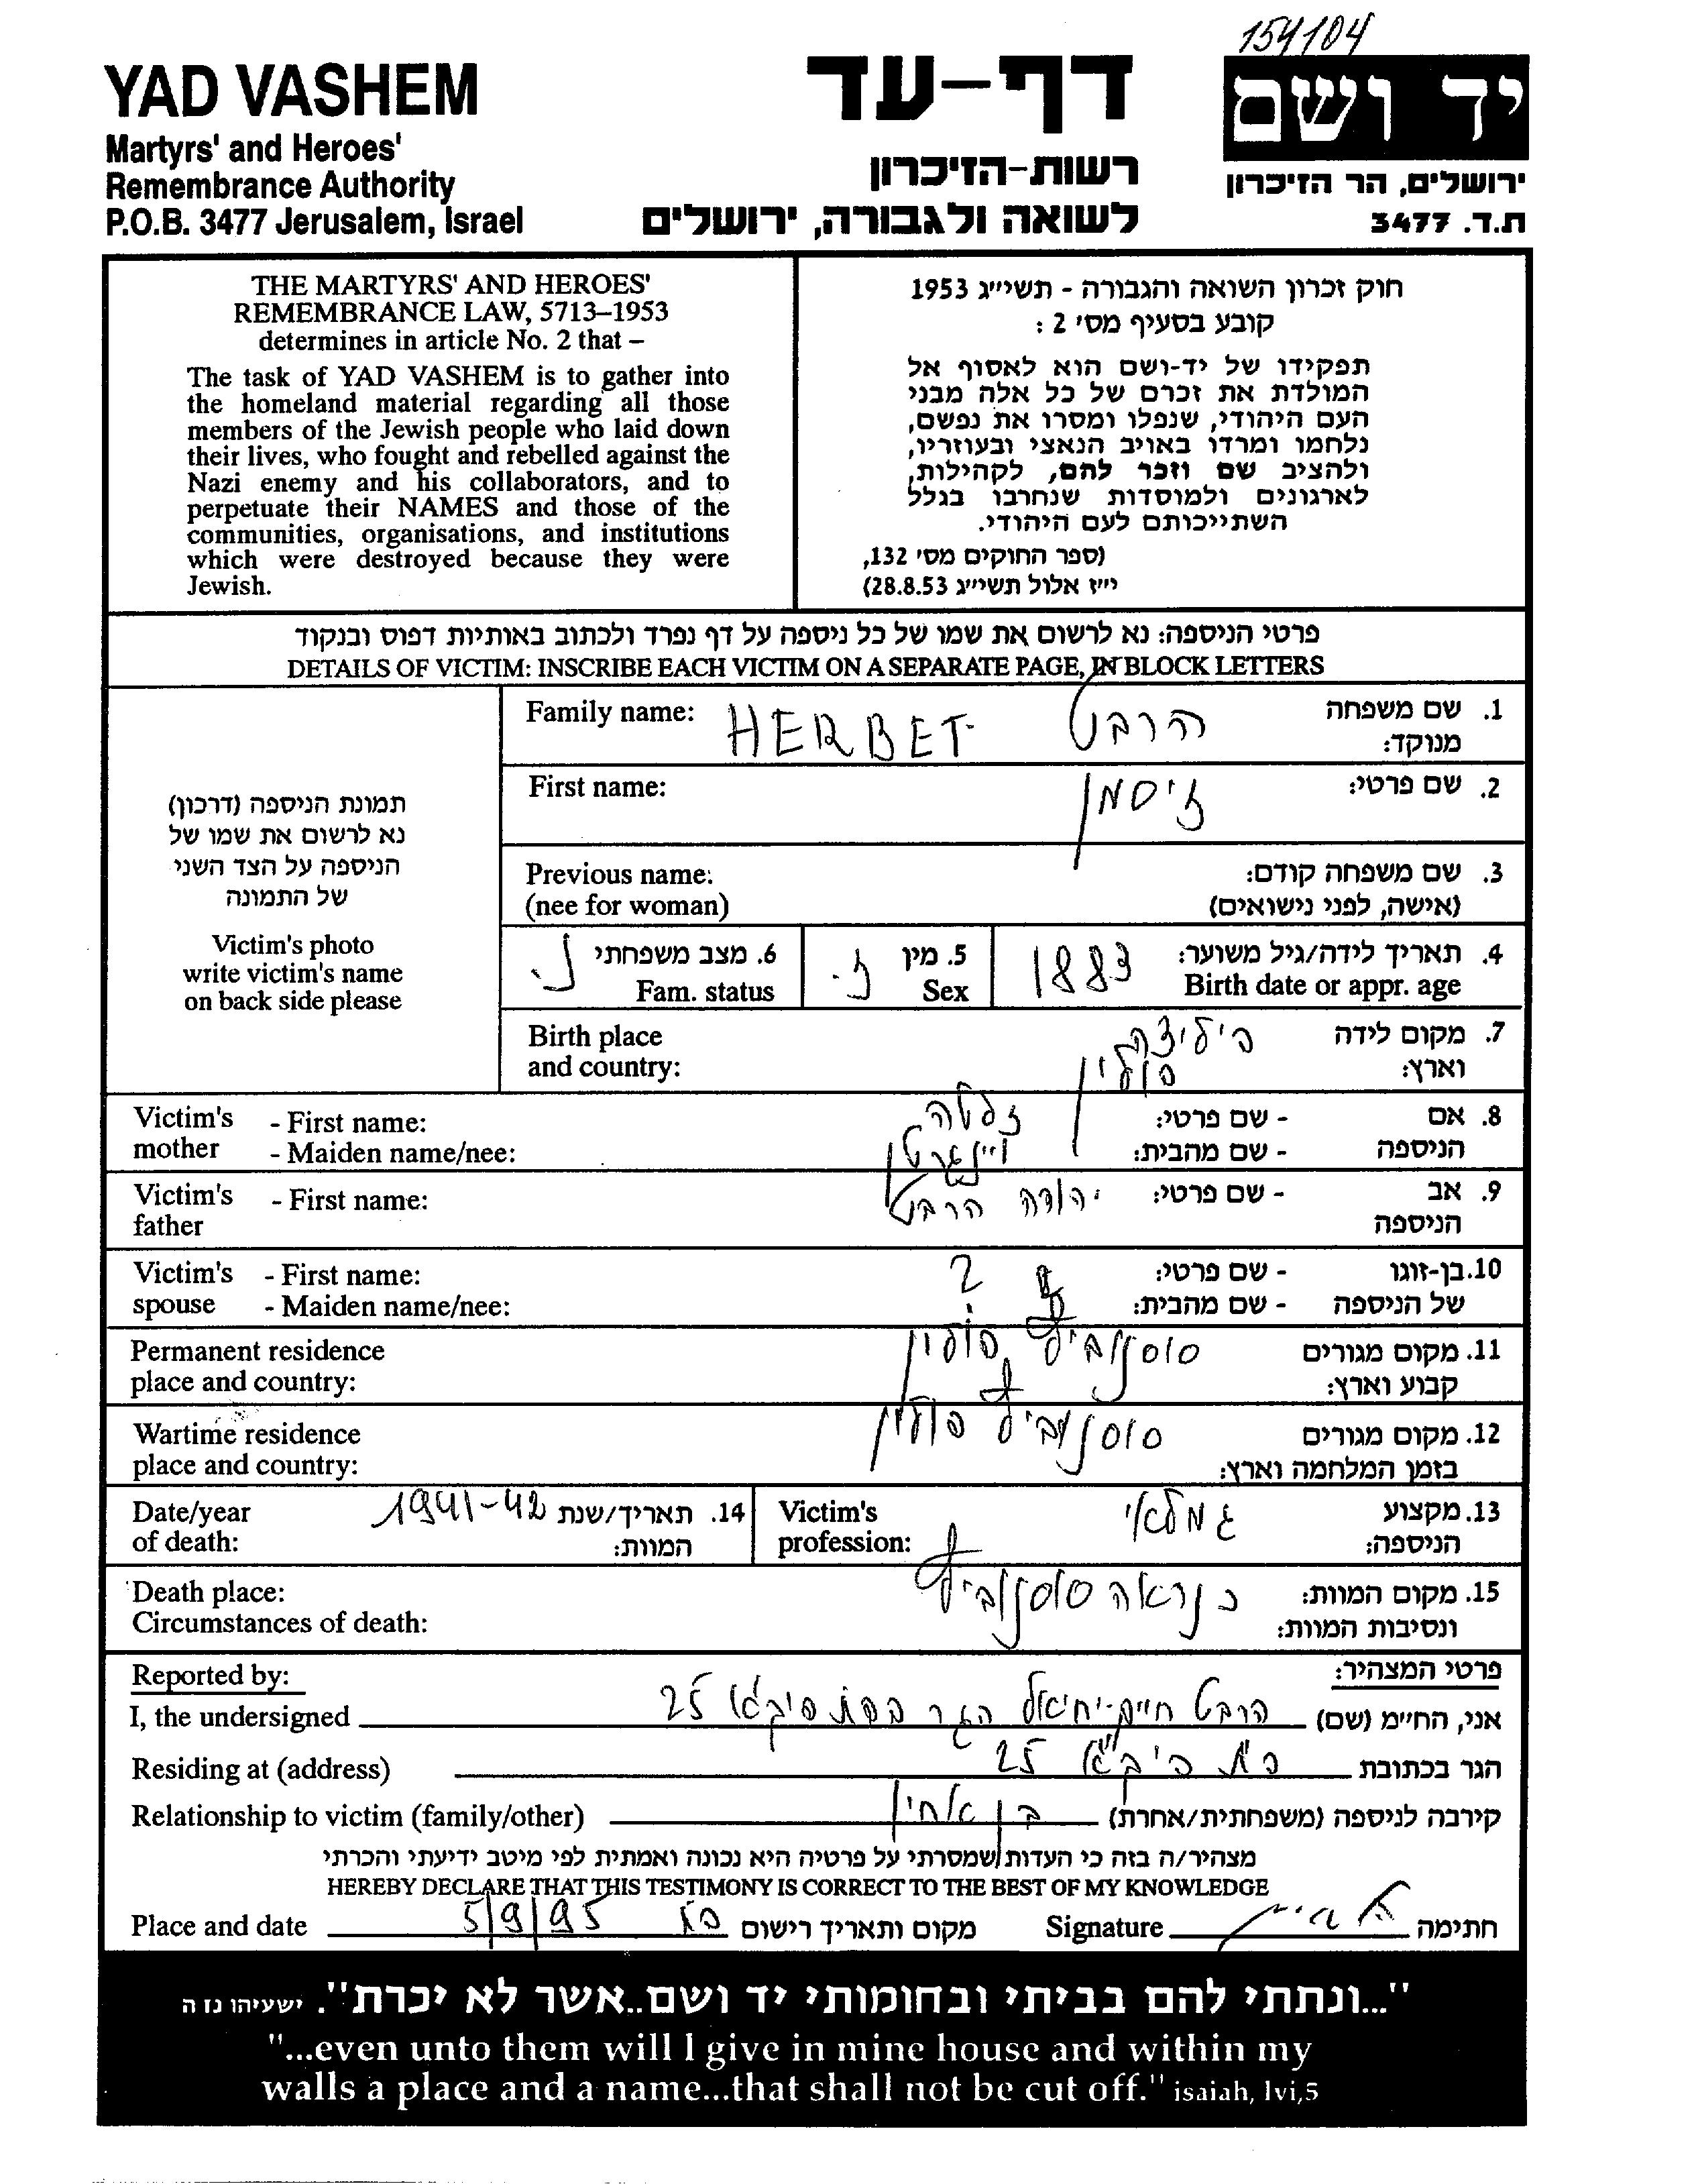 154104
YAD VASHEM
Martyrs' and Heroes'
Remembrance Authority
P.O.B. 3477 Jerusalem, Israel
דף-עד
רשות-הזיכרון
לשואה ולגבורה, ירושלים
יד ושם
ירושלים, הר הזיכרון
ת.ד. 3477
THE MARTYRS' AND HEROES'
REMEMBRANCE LAW, 5713–1953
determines in article No. 2 that –
The task of YAD VASHEM is to gather into
the homeland material regarding all those
members of the Jewish people who laid down
their lives, who fought and rebelled against the
Nazi enemy and his collaborators, and to
perpetuate their NAMES and those of the
communities, organisations, and institutions
which were destroyed because they were
Jewish.
חוק זכרון השואה והגבורה - תשי״ג 1953
קובע בסעיף מס׳ 2 :
תפקידו של יד-ושם הוא לאסוף אל
המולדת את זכרם של כל אלה מבני
העם היהודי, שנפלו ומסרו את נפשם,
נלחמו ומרדו באויב הנאצי ובעוזריו,
ולהציב שם וזכר להם, לקהילות,
לארגונים ולמוסדות שנחרבו בגלל
השתייכותם לעם היהודי.
(ספר החוקים מס׳ 132,
י״ז אלול תשי״ג 28.8.53)
פרטי הניספה: נא לרשום את שמו של כל ניספה על דף נפרד ולכתוב באותיות דפוס ובנקוד
DETAILS OF VICTIM: INSCRIBE EACH VICTIM ON A SEPARATE PAGE, IN BLOCK LETTERS
תמונת הניספה (דרכון)
נא לרשום את שמו של
הניספה על הצד השני
של התמונה
Victim's photo
write victim's name
on back side please
Family name: HERBET הרבט 1. שם משפחה
מנוקד:
First name: זיסמן 2. שם פרטי:
Previous name: 3. שם משפחה קודם:
(nee for woman) (אישה, לפני נישואים)
6. מצב משפחתי נ.
Fam. status
5. מין ז.
Sex
4. תאריך לידה/גיל משוער: 1883
Birth date or appr. age
Birth place 7. מקום לידה
and country: פולין וארץ:
Victim's - First name: זלטה - שם פרטי: 8. אם
mother - Maiden name/nee: - שם מהבית: הניספה
Victim's - First name: יהודה הרבט - שם פרטי: 9. אב
father הניספה
Victim's - First name: ? - שם פרטי: 10. בן-זוגו
spouse - Maiden name/nee: - שם מהבית: של הניספה
Permanent residence סוסנוביץ, פולין 11. מקום מגורים
place and country: קבוע וארץ:
Wartime residence סוסנוביץ פולין 12. מקום מגורים
place and country: בזמן המלחמה וארץ:
Date/year 1941-42 14. תאריך/שנת
of death: המוות:
Victim's גמלאי 13. מקצוע
profession: הניספה:
Death place: כנראה סוסנוביץ 15. מקום המוות:
Circumstances of death: ונסיבות המוות:
Reported by: פרטי המצהיר:
I, the undersigned הרבט חיים-יחיאל הגר 25 אני, החיימ (שם)
Residing at (address) 25 הגר בכתובת
Relationship to victim (family/other) בן אחיו קירבה לניספה (משפחתית/אחרת)
מצהיר/ה בזה כי העדות שמסרתי על פרטיה היא נכונה ואמתית לפי מיטב ידיעתי והכרתי
HEREBY DECLARE THAT THIS TESTIMONY IS CORRECT TO THE BEST OF MY KNOWLEDGE
Place and date 5/9/95 מקום ותאריך רישום Signature חתימה
"...ונתתי להם בביתי ובחומותי יד ושם..אשר לא יכרת". ישעיהו נז ה
"...even unto them will I give in mine house and within my
walls a place and a name...that shall not be cut off." isaiah, lvi,5